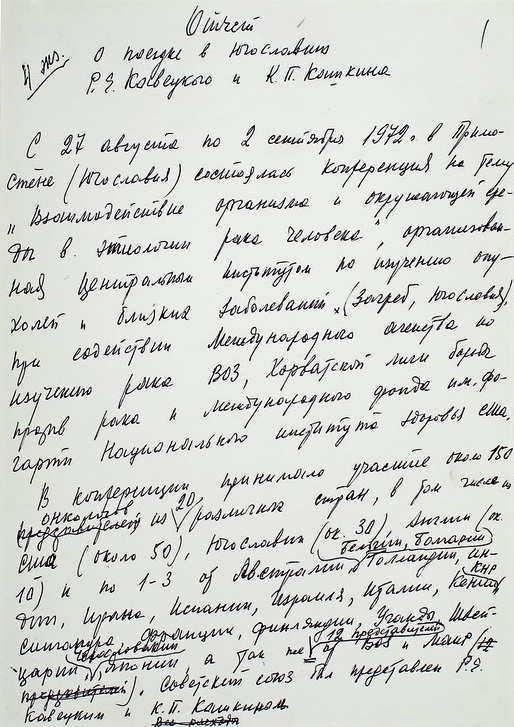 Отчет
1
4 экз.
о поездке в Югославию
Р.Е. Кавецкого и К.П. Кашкина
С 27 августа по 2 сентября 1972 г. в Примо-
стене (Югославия) состоялась конференция на тему
"Взаимодействие организма и окружающей сре-
ды в этиологии рака человека", организован-
ная Центральным институтом по изучению опу-
холей и близких заболеваний (Загреб, Югославия),
при содействии Международного агентства по
изучению рака ВОЗ, Хорватской лиги борьбы
против рака и Международного фонда им. Фо-
гарти Национального института здоровья США.
В конференции принимало участие около 150
онкологов
представителей из 20 различных стран, в том числе из
США (около 50), Югославии (ок. 30), Англии (ок.
Бельгии, Болгарии
10) и по 1-3 от Австралии, Голландии, Ин-
КНР
дии, Ирана, Испании, Израиля, Италии, Кении,
Сингапура, Франции, Финляндии, Уганды, Швей-
Чехословакии 12 представителей
царии, Японии, а так же от ВОЗ и МАИР (12
представителей). Советский союз был представлен Р.Е.
Кавецким и К.П. Кашкиным.
Все расходы